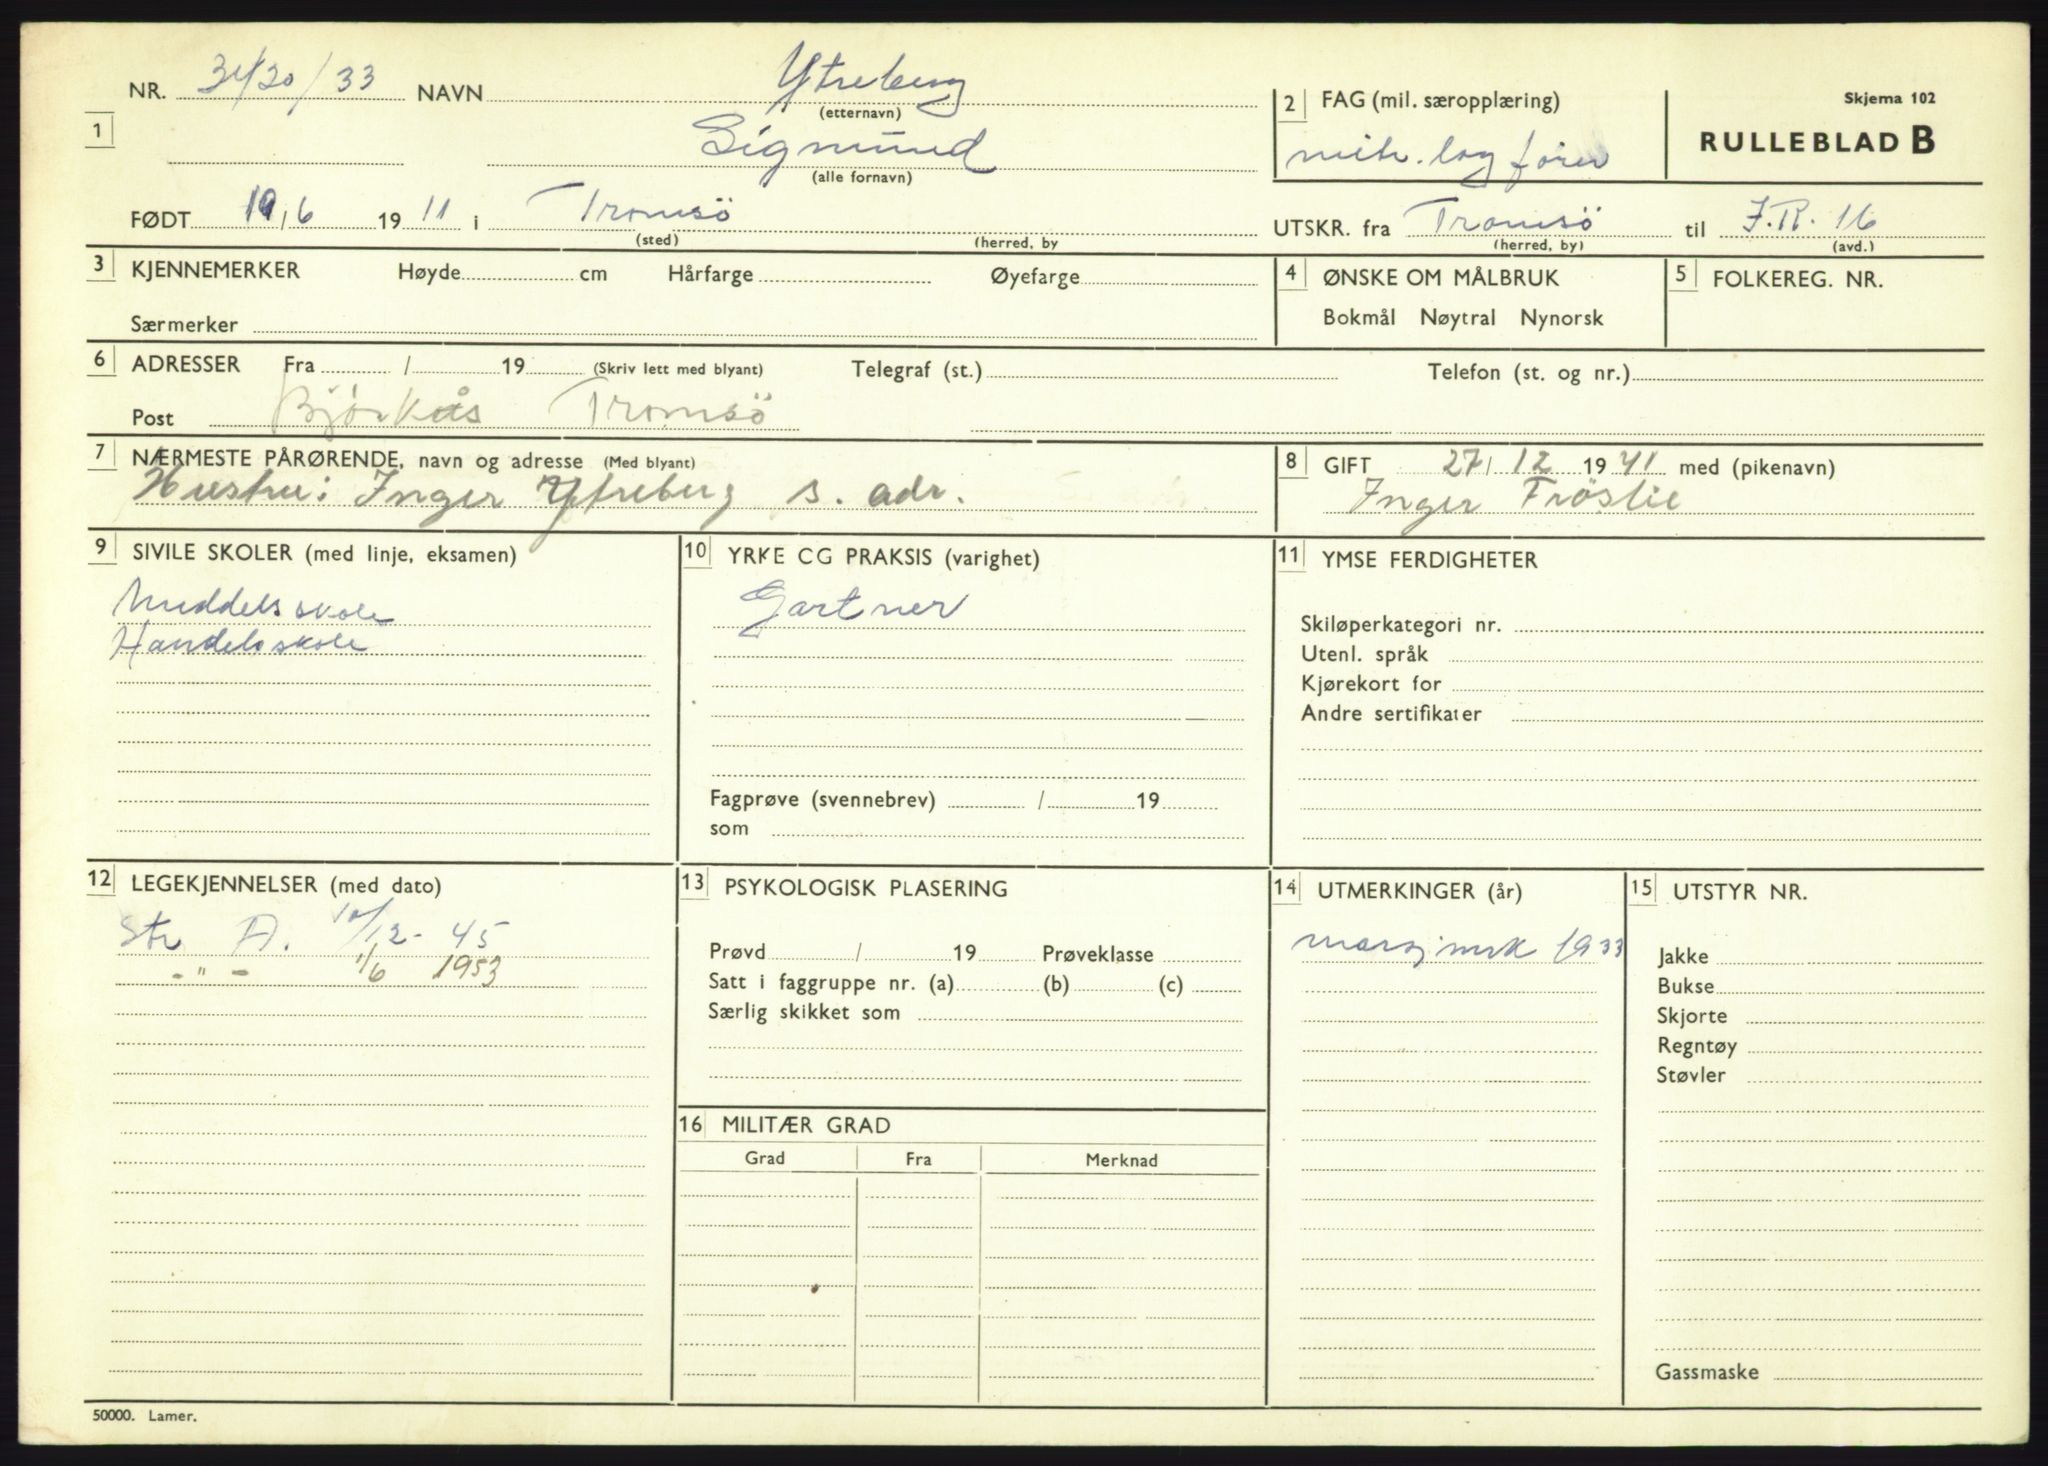 NR. 31/20/33 NAVN Ytreberg
(etternavn)
1
Sigmund
(alle fornavn)
FØDT 19/6 1911 i Tromsö
(sted) (herred, by
2 FAG (mil. særopplæring)
mitr. lag fører
Skjema 102
RULLEBLAD B
UTSKR. fra Tromsö til J.R. 16
(herred, by) (avd.)
3 KJENNEMERKER Høyde cm Hårfarge Øyefarge
Særmerker
4 ØNSKE OM MÅLBRUK
Bokmål Nøytral Nynorsk
5 FOLKEREG. NR.
6 ADRESSER Fra / 19 (Skriv lett med blyant) Telegraf (st.) Telefon (st. og nr.)
Post Bjørkås Tromsö
7 NÆRMESTE PÅRØRENDE, navn og adresse (Med blyant)
Hustru: Inger Ytreberg s. adr.
8 GIFT 27/12 1941 med (pikenavn)
Inger Fröslie
9 SIVILE SKOLER (med linje, eksamen)
Middelsskole
Handelsskole
10 YRKE CG PRAKSIS (varighet)
Gartner
Fagprøve (svennebrev) / 19
som
11 YMSE FERDIGHETER
Skiløperkategori nr.
Utenl. språk
Kjørekort for
Andre sertifikater
12 LEGEKJENNELSER (med dato)
Str A. 10/12-45
-"- 1/6 1953
13 PSYKOLOGISK PLASERING
Prøvd / 19 Prøveklasse
Satt i faggruppe nr. (a) (b) (c)
Særlig skikket som
14 UTMERKINGER (år)
marsjmrk 1933
15 UTSTYR NR.
Jakke
Bukse
Skjorte
Regntøy
Støvler
Gassmaske
16 MILITÆR GRAD
Grad Fra Merknad
50000. Lamer.